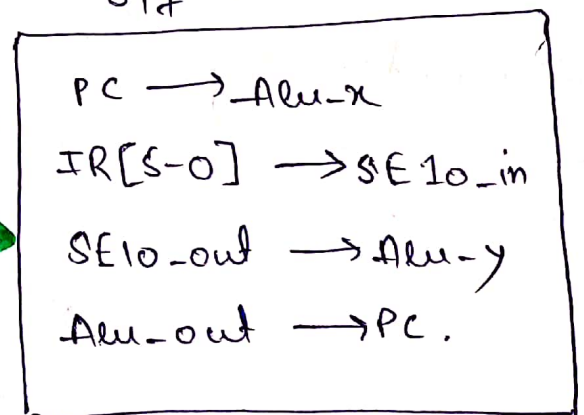 PC → Alu-x
IR[5-0] → SE10_in
SE10-out → Alu-y
Alu-out → PC.